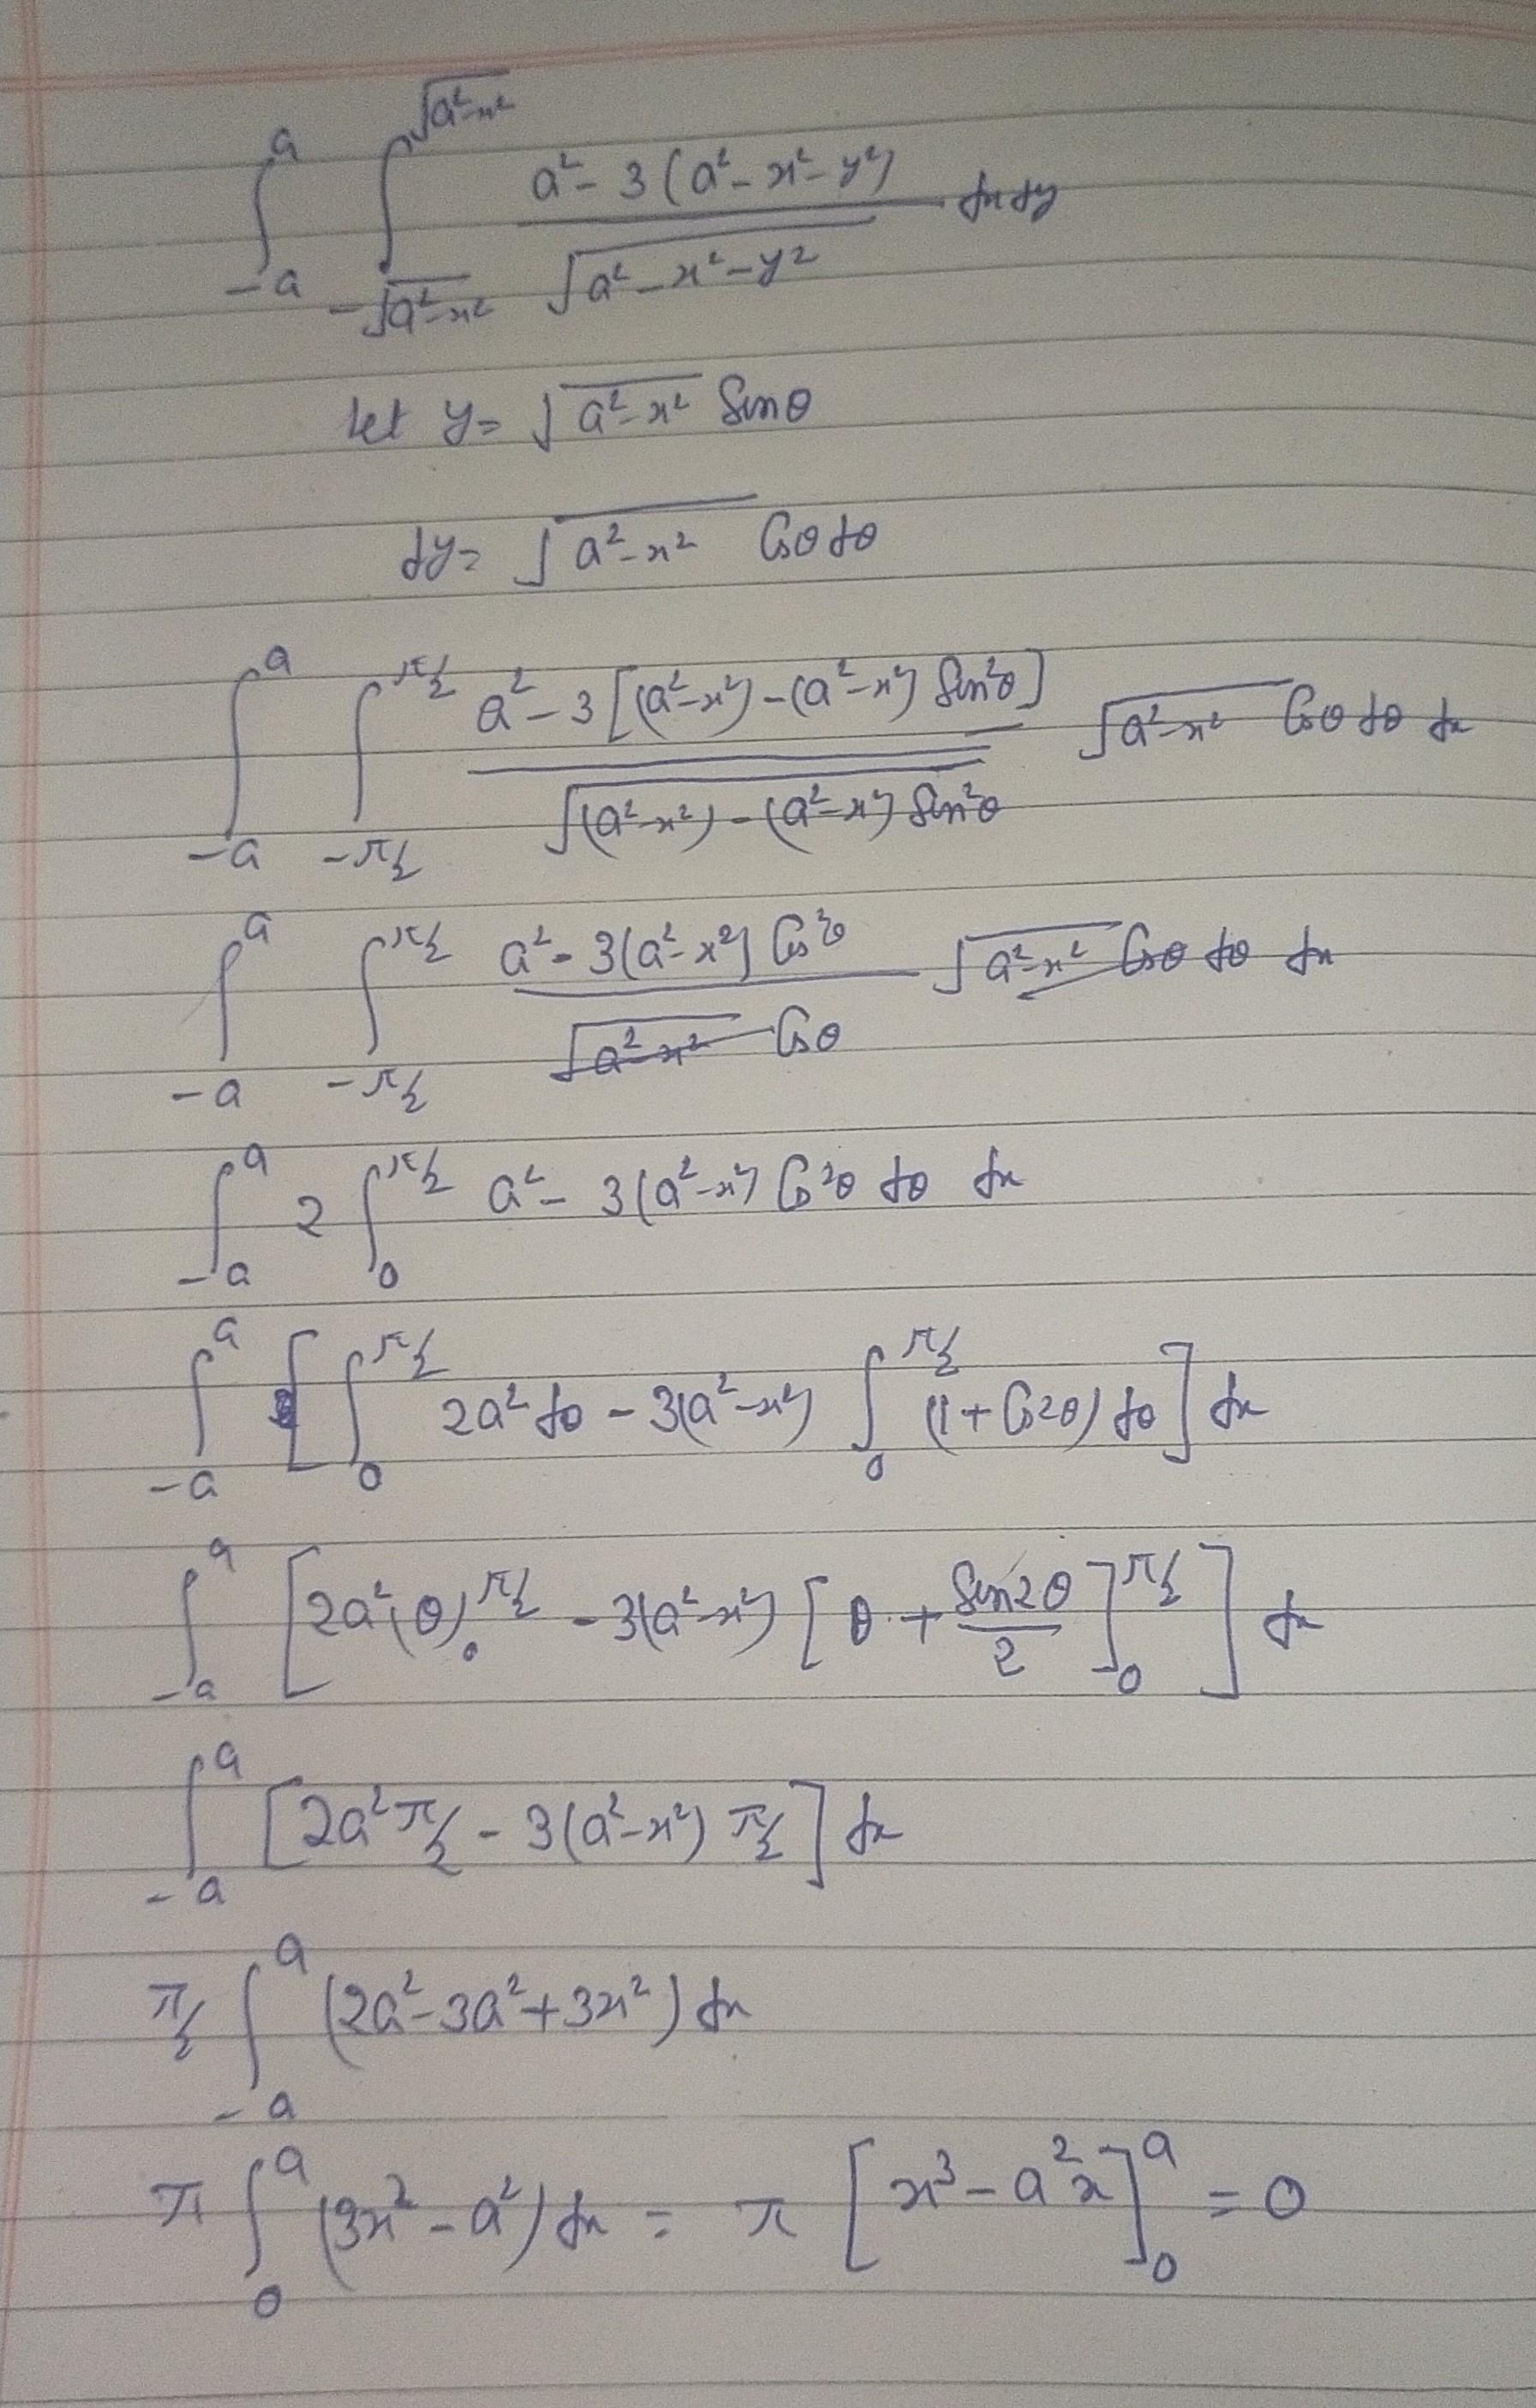 ∫_{-a}^{a} ∫_{-√(a²-x²)}^{√(a²-x²)} (a² - 3(a² - x² - y²)) / √(a² - x² - y²) dx dy
let y = √(a²-x²) Sinθ
dy = √(a²-x²) Cosθ dθ
∫_{-a}^{a} ∫_{-π/2}^{π/2} (a² - 3[(a²-x²) - (a²-x²) Sin²θ]) / √((a²-x²) - (a²-x²) Sin²θ) √(a²-x²) Cosθ dθ dx
∫_{-a}^{a} ∫_{-π/2}^{π/2} (a² - 3(a²-x²) Cos²θ) / (√(a²-x²) Cosθ) √(a²-x²) Cosθ dθ dx
∫_{-a}^{a} 2 ∫_{0}^{π/2} a² - 3(a²-x²) Cos²θ dθ dx
∫_{-a}^{a} [ ∫_{0}^{π/2} 2a² dθ - 3(a²-x²) ∫_{0}^{π/2} (1 + Cos2θ) dθ ] dx
∫_{-a}^{a} [ 2a²(θ)_{0}^{π/2} - 3(a²-x²) [ θ + Sin2θ/2 ]_{0}^{π/2} ] dx
∫_{-a}^{a} [ 2a² π/2 - 3(a²-x²) π/2 ] dx
π/2 ∫_{-a}^{a} (2a² - 3a² + 3x²) dx
π ∫_{0}^{a} (3x² - a²) dx = π [ x³ - a²x ]_{0}^{a} = 0